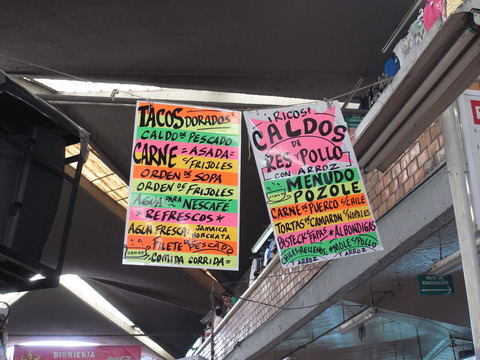 TACOS DORADOS
CALDO DE PESCADO
CARNE = ASADA = C/ FRIJOLES
ORDEN DE SOPA
ORDEN DE FRIJOLES
AGUA PARA NESCAFÉ
* REFRESCOS *
AGUA FRESCA: JAMAICA HORCHATA
FILETE DE PESCADO
COMIDA CORRIDA =
¡RICOS!
CALDOS
DE
RES Y POLLO
CON ARROZ
MENUDO
POZOLE
CARNE DE PUERCO C/CHILE
TORTAS DE CAMARON C/NOPALES
BISTECK C/PAPAS * ALBONDIGAS
CHILES RELLENOS * MOLE C/POLLO
C/ARROZ Y ARROZ
RUTA DE
EVACUACIÓN
BIRRIERÍA